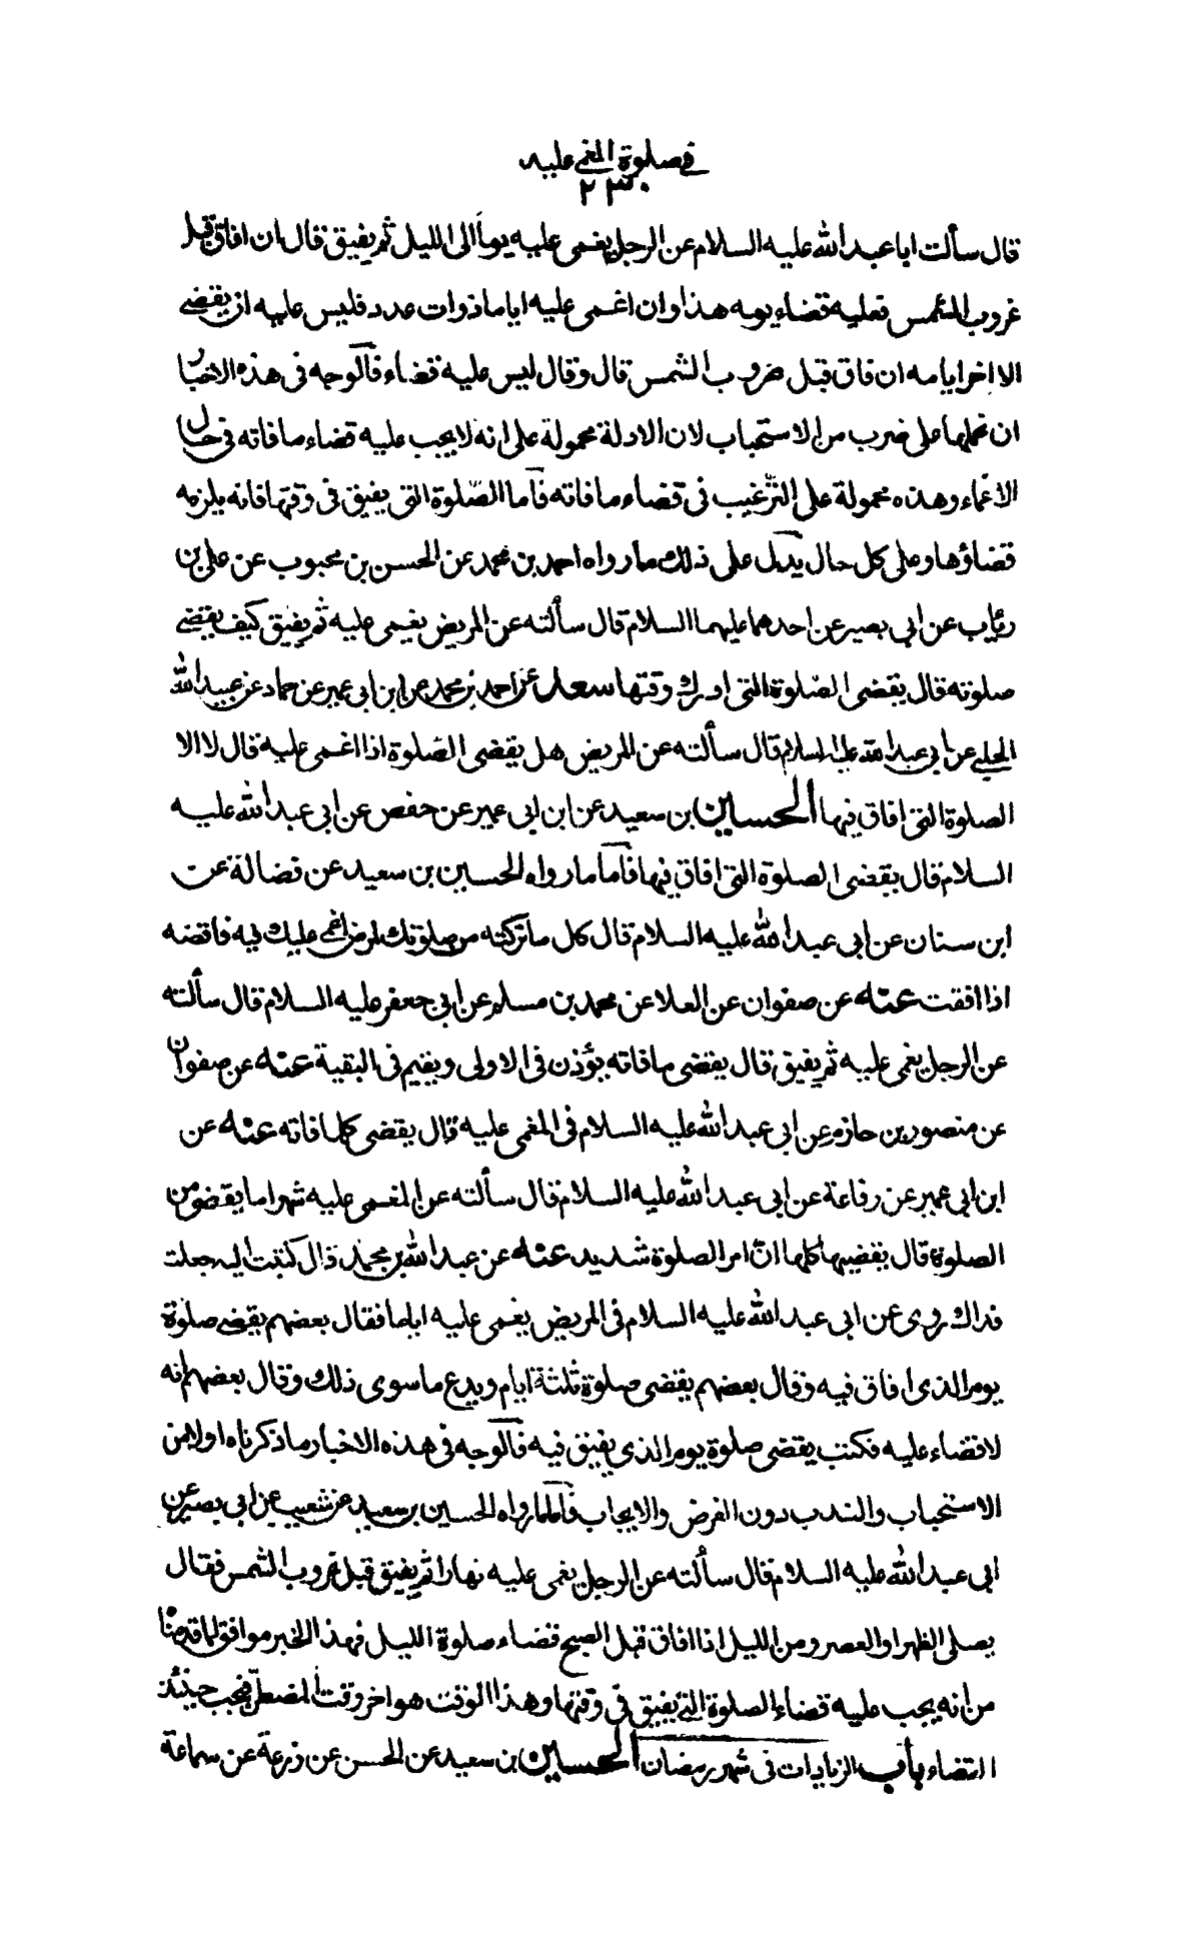 في صلوة المغمى عليه
٢٣٠
قال سألت ابا عبد الله عليه السلام عن الرجل يغمى عليه يوماً الى الليل ثم يفيق قال ان افاق قبل
غروب الشمس فعليه قضاء يومه هذا وان اغمى عليه اياما ذوات عدد فليس عليه ان يقضى
الا اخر ايامه ان فاق قبل غروب الشمس قال وقال ليس عليه قضاء فالوجه في هذه الاخبار
ان نحملها على ضرب من الاستحباب لان الادلة محمولة على انه لا يجب عليه قضاء ما فاته في حال
الاغماء وهذه محمولة على الترغيب في قضاء ما فاته فأما الصّلوة التي يفيق في وقتها فانه يلزمه
قضاؤها وعلى كل حال يدل على ذلك ما رواه احمد بن محمد عن الحسن بن محبوب عن علي بن
رئاب عن ابي بصير عن احدهما عليهما السلام قال سألته عن المريض يغمى عليه ثم يفيق كيف يقضى
صلوته قال يقضى الصّلوة التي ادرك وقتها سعد عن احمد بن محمد عن ابن ابي عمير عن حماد عن عبيد الله
الحلبي عن ابي عبد الله عليه السلام قال سألته عن المريض هل يقضى الصّلوة اذا اغمى عليه قال لا الا
الصلوة التي افاق فيها الحسين بن سعيد عن ابن ابي عمير عن حفص عن ابي عبد الله عليه
السلام قال يقضى الصلوة التي افاق فيها فأما ما رواه الحسين بن سعيد عن فضالة عن
ابن سنان عن ابي عبد الله عليه السلام قال كل ما تركته من صلوتك لمرض اغمى عليك فيه فاقضه
اذا افقت عنه عن صفوان عن العلا عن محمد بن مسلم عن ابي جعفر عليه السلام قال سألته
عن الرجل يغمى عليه ثم يفيق قال يقضى ما فاته يؤذن في الاولى ويقيم في البقية عنه عن صفوان
عن منصور بن حازم عن ابي عبد الله عليه السلام في المغمى عليه قال يقضى كلما فاته عنه عن
ابن ابي عمير عن رفاعة عن ابي عبد الله عليه السلام قال سألته عن المغمى عليه شهرا ما يقضى من
الصلوة قال يقضيها كلها انّ امر الصلوة شديد عنه عن عبد الله بن محمد قال كتبت اليه جعلت
فداك روى عن ابي عبد الله عليه السلام في المريض يغمى عليه اياما فقال بعضهم يقضى صلوة
يوم الذى افاق فيه وقال بعضهم يقضى صلوة ثلثة ايام ويدع ما سوى ذلك وقال بعضهم انه
لا قضاء عليه فكتب يقضى صلوة يوم الذي يفيق فيه فالوجه في هذه الاخبار ما ذكرناه اولا من
الاستحباب والندب دون الفرض والايجاب فأما ما رواه الحسين بن سعيد عن شعيب عن ابي بصير عن
ابي عبد الله عليه السلام قال سألته عن الرجل يغمى عليه نهارا ثم يفيق قبل غروب الشمس فقال
يصلى الظهر او العصر ومن الليل اذا افاق قبل الصبح قضاء صلوة الليل فهذا الخبر موافق لما قدمنا
من انه يجب عليه قضاء الصلوة التي يفيق في وقتها وهذا الوقت هو اخر وقت المضطر فيجب حينئذ
القضاء باب الزيادات في شهر رمضان الحسين بن سعيد عن الحسن عن زرعة عن سماعة